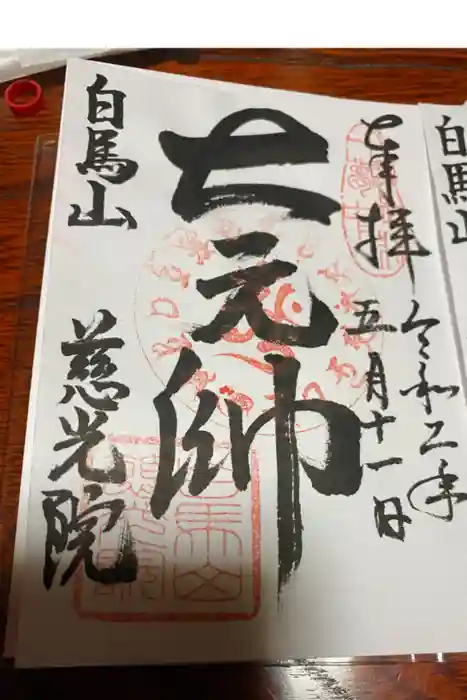 奉拝
令和二年
五月十一日
大元帥
白馬山
慈光院
白馬山